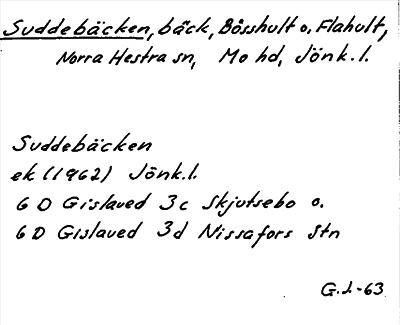 Suddebäcken, bäck, Bösshult o. Flahult,
Norra Hestra sn, Mo hd, Jönk.l.
Suddebäcken
ek (1962) Jönk.l.
6 D Gislaved 3c Skjutsebo o.
6 D Gislaved 3d Nissafors Stn
G.J.-63